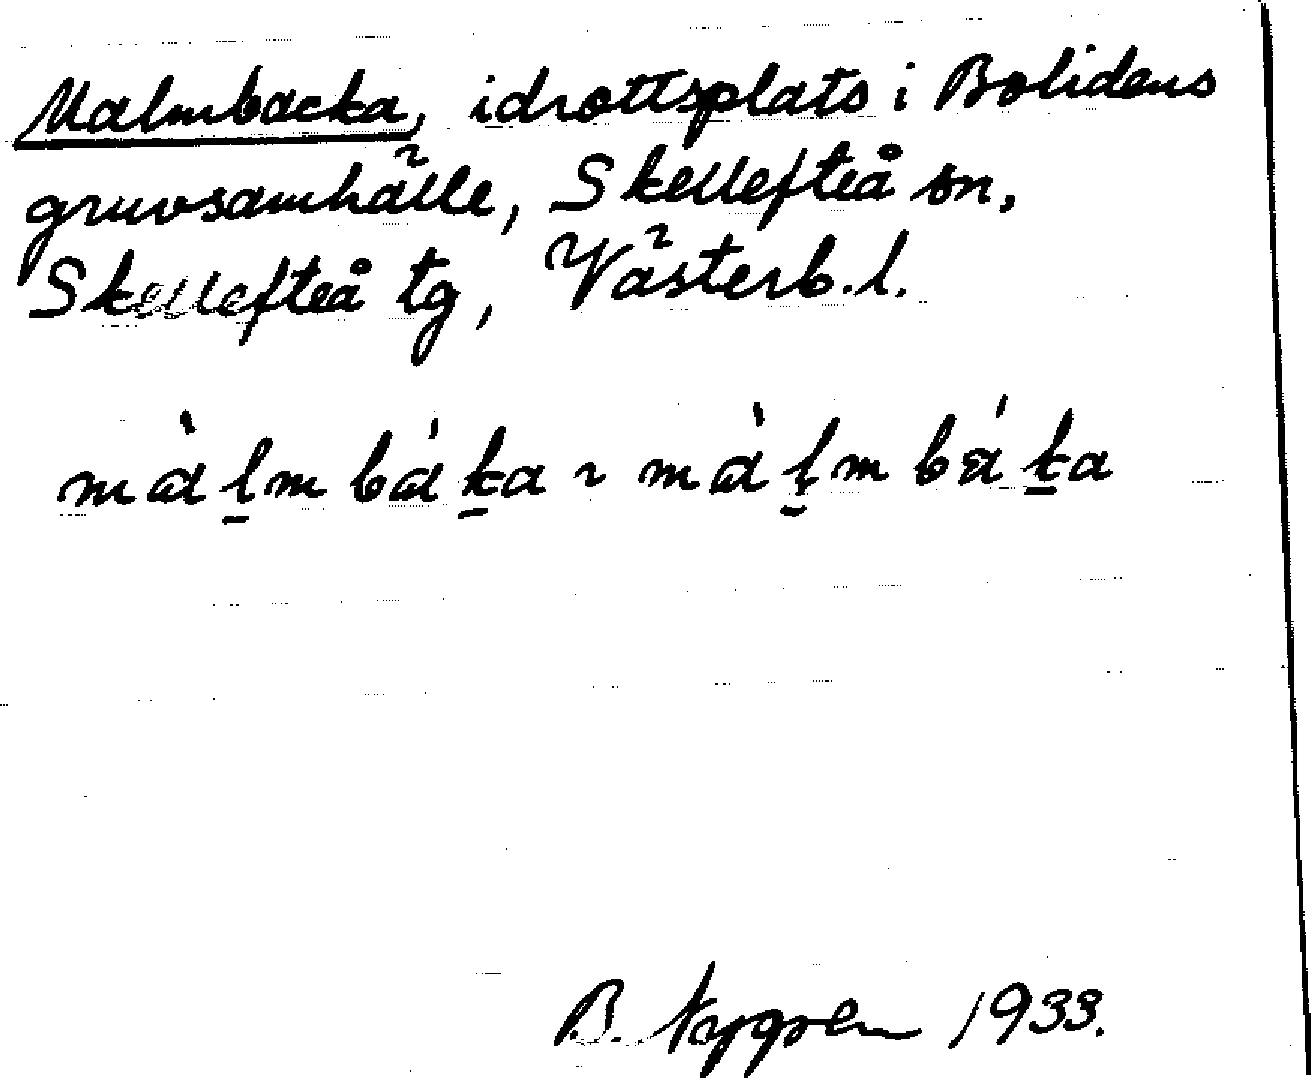 Malmbacka, idrottsplats i Bolidens
gruvsamhälle, Skellefteå sn,
Skellefteå tg, Västerb. l.
mὰl̠m bάk̠a ~ mὰl̠̣m bάk̠a
B. Nygren 1933.